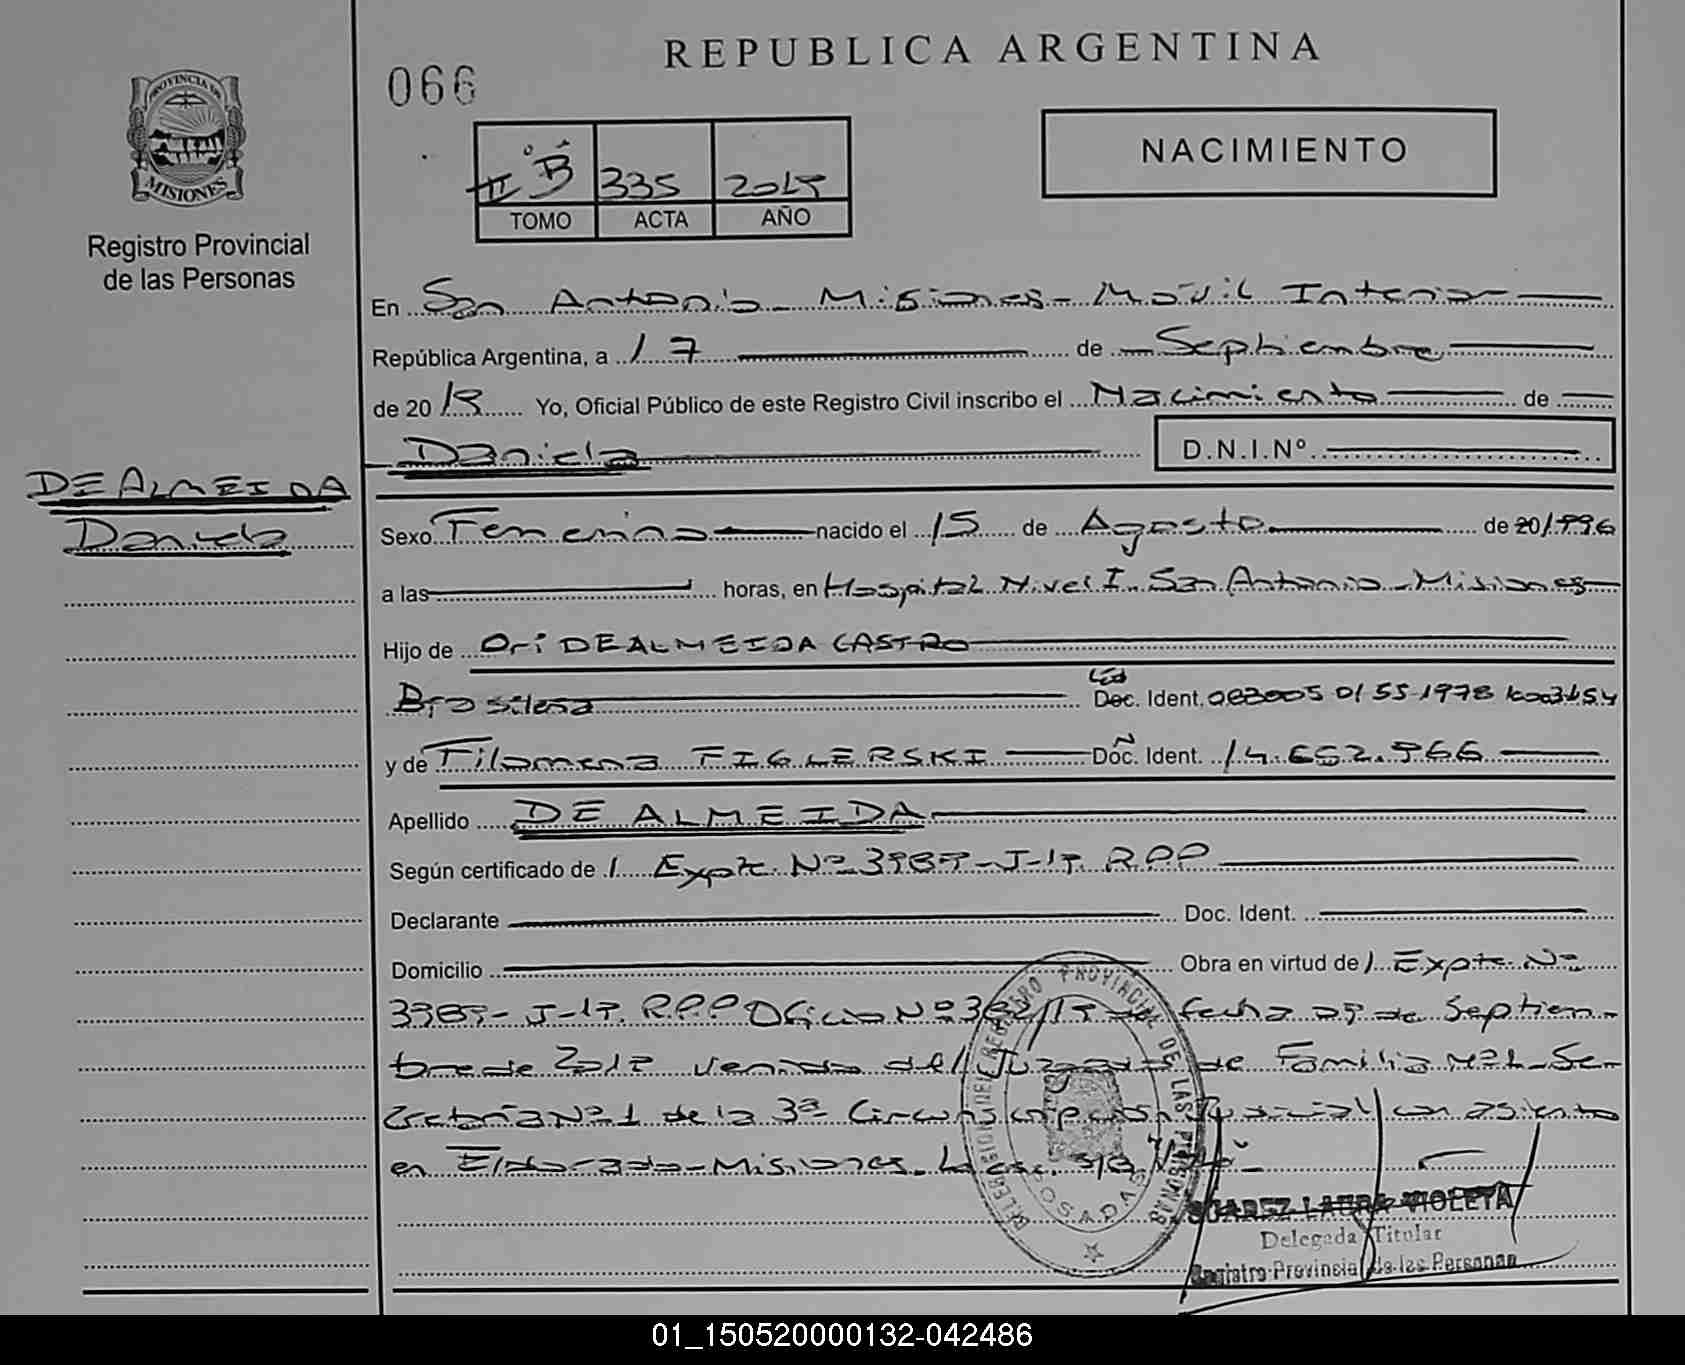 REPUBLICA ARGENTINA
066
PROVINCIA DE
MISIONES
Registro Provincial
de las Personas
B 335
TOMO ACTA AÑO
NACIMIENTO
En San Antonio - Misiones - Móvil Interior
República Argentina, a 17 de Septiembre
de 20 Yo, Oficial Público de este Registro Civil inscribo el Nacimiento de
Daniela D.N.I.Nº.
DE ALMEIDA
Daniela
Sexo Femenino nacido el 15 de Agosto de 20/1996
a las horas, en Hospital Nivel I. San Antonio - Misiones
Hijo de Ori DE ALMEIDA CASTRO
Brasilera Doc. Ident. 083005 01 55 1978
y de Filomena FIGLERSKI Doc. Ident. 14.652.966
Apellido DE ALMEIDA
Según certificado de / Expte. Nº 3989-J-19. R.P.P
Declarante Doc. Ident.
Domicilio Obra en virtud de / Expte Nº
3989-J-19. R.P.P Oficio Nº de fecha 09 de Septiem-
bre de venido del Juzgado de Familia Nº1 - Se-
cretaría Nº1 de la 3ª Circunscripción Judicial con asiento
en Eldorado - Misiones.
DELEGACION DEL REGISTRO PROVINCIAL DE LAS PERSONAS
POSADAS
SUAREZ LAURA VIOLETA
Delegada Titular
Registro Provincial de las Personas
01_150520000132-042486